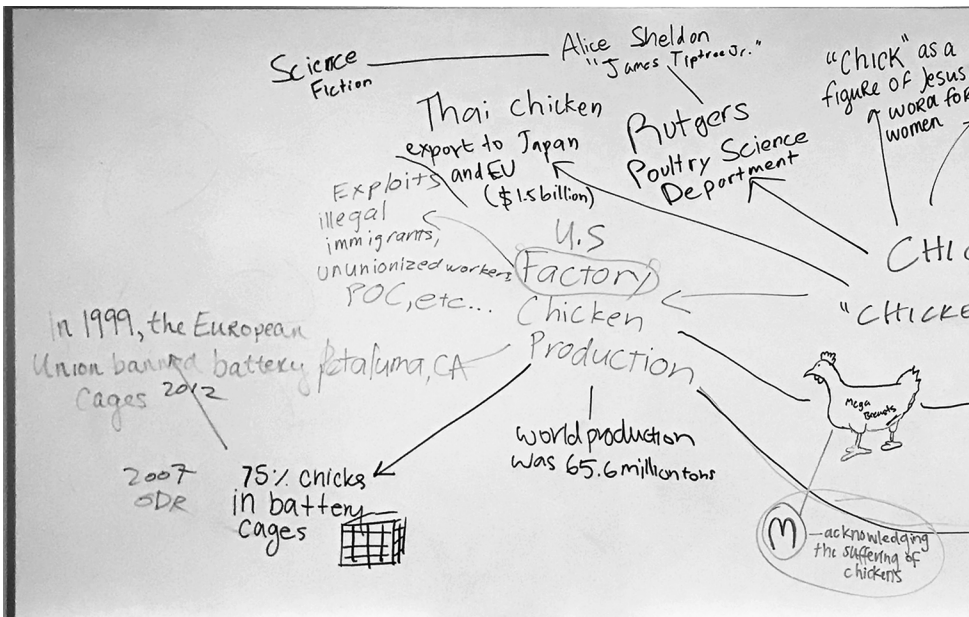 Science
Fiction
Alice Sheldon
"James Tiptree Jr."
"CHICK" as a
figure of Jesus
word for
women
Thai chicken
export to Japan
and EU
($1.5 billion)
Rutgers
Poultry Science
Department
Exploits
illegal
immigrants,
ununionized workers
POC, etc...
U.S
Factory
Chicken
Production
CHIC
"CHICKE
In 1999, the European
Union banned battery
Cages 2012
Petaluma, CA
Mega
Breasts
world production
was 65.6 million tons
2007
75% chicks
in battery
cages
M
-acknowledging
the suffering of
chickens